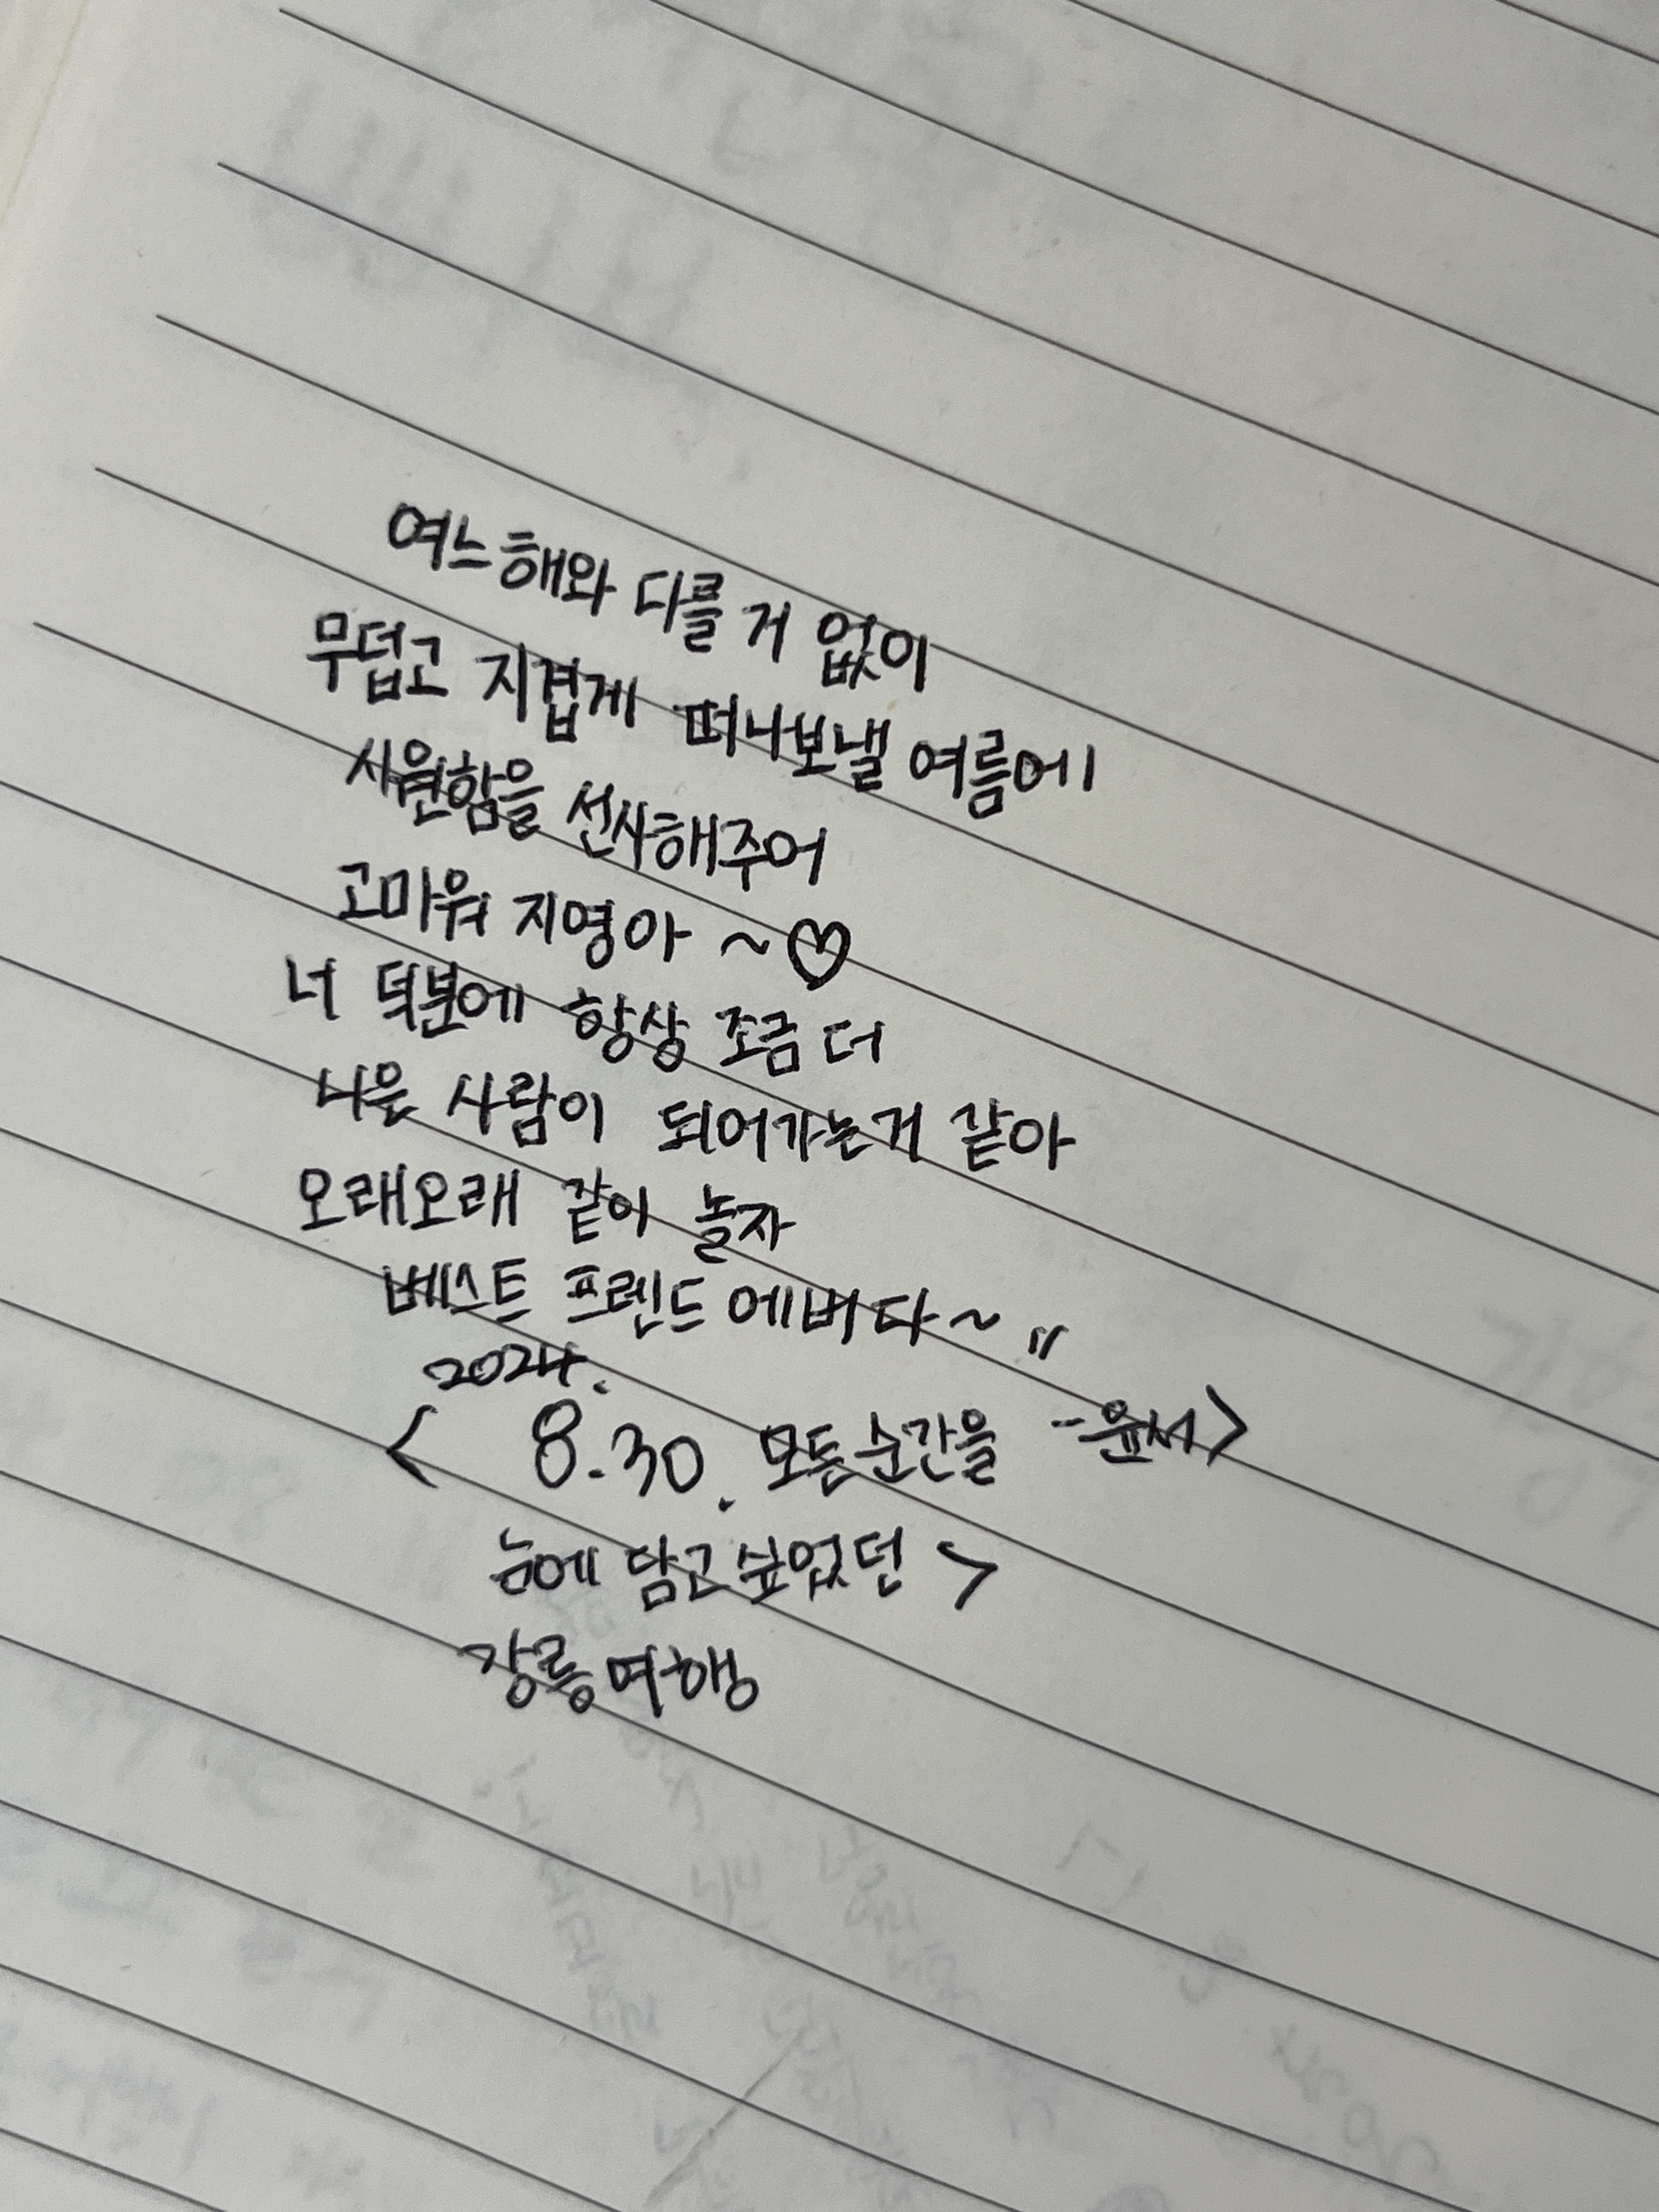 여느해와 다를 거 없이
무덥고 지겹게 떠나보낼 여름에
시원함을 선사해주어
고마워 지영아 ~♡
너 덕분에 항상 조금 더
나은 사람이 되어가는거 같아
오래오래 같이 놀자
베스트 프렌드 에버다~ "
2024.
< 8.30. 모든순간을 -윤서>
눈에 담고싶었던 >
강릉여행